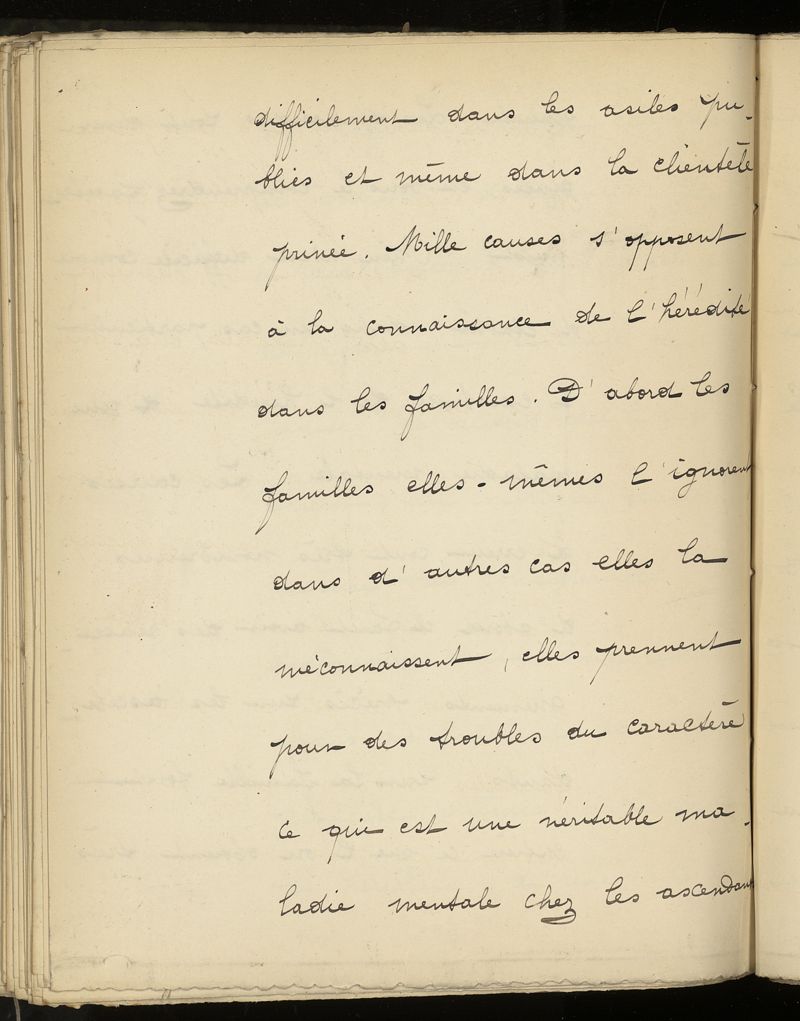 difficilement dans les asiles pu-
blics et même dans la clientèle
privée. Mille causes s'opposent
à la connaissance de l'hérédité
dans les familles. D'abord les
familles elles-mêmes l'ignorent
dans d'autres cas elles la
méconnaissent, elles prennent
pour des troubles du caractère
ce qui est une véritable ma-
ladie mentale chez les ascendants